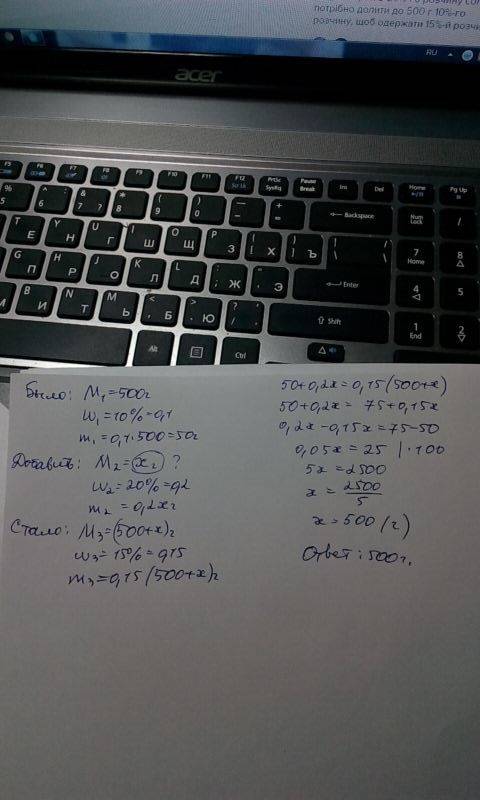 розчину
потрібно долити до 500 г 10%-го
розчину, щоб одержати 15%-й розчи
RU
acer
F5 F6 F7 F8 F9 F10 F11 F12 PrtSc SysRq Pause Break Ins Del Home Pg Up
Backspace Num Lock 7 Home 8
Enter 4 5
Shift 1 End 2
Alt Ctrl
Было: M₁=500г
W₁=10%=0,1
m₁=0,1·500=50г
Добавить: M₂=xг ?
W₂=20%=0,2
m₂=0,2xг
Стало: M₃=(500+x)г
W₃=15%=0,15
m₃=0,15(500+x)г
50+0,2x=0,15(500+x)
50+0,2x=75+0,15x
0,2x-0,15x=75-50
0,05x=25 |·100
5x=2500
x=2500/5
x=500(г)
Ответ: 500г.